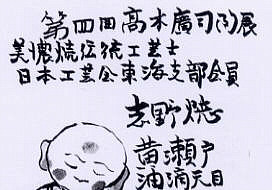 第四回高木廣司陶展
美濃焼伝統工芸士
日本工芸会東海支部会員
志野焼
黄瀬戸
油滴天目